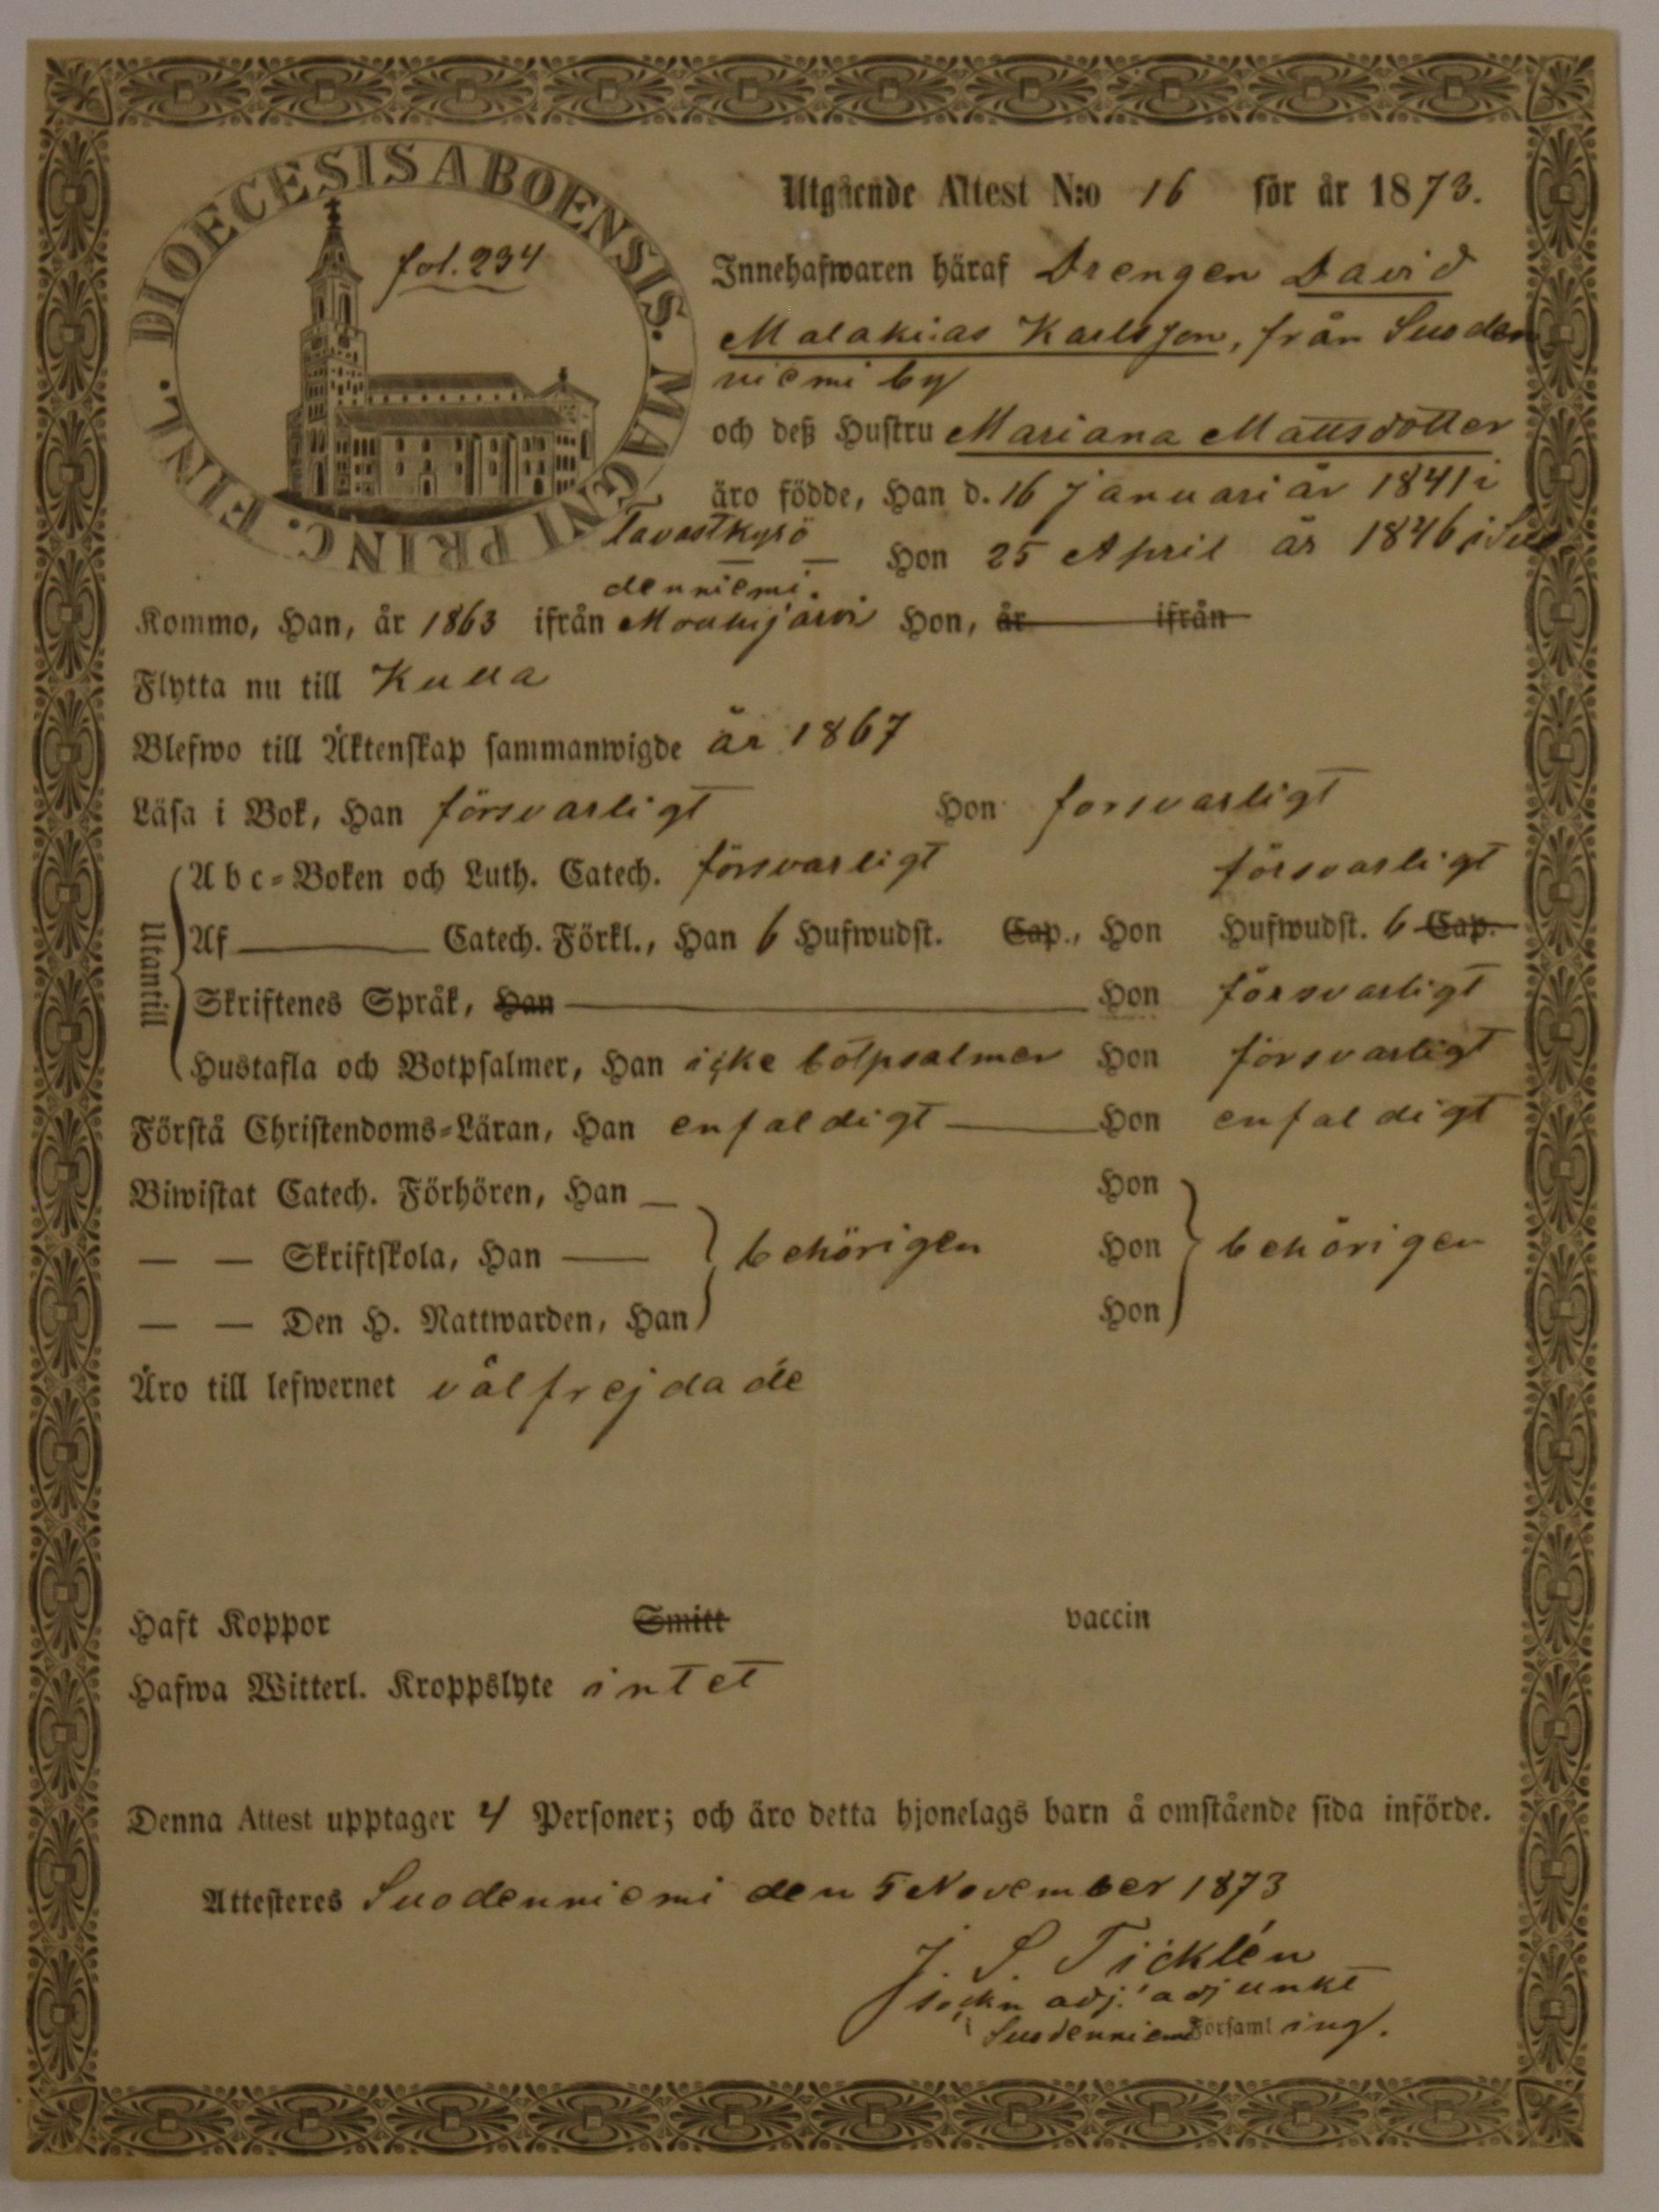 DIOECESIS ABOENSIS. MAGNI PRINC. FINL.
fol. 234
Utgående Attest N:o 16 för år 1873.
Innehafwaren häraf Drengen David
Malakias Karlsson, från Suoden
niemi by
och deß Hustru Mariana Mattsdotter
äro födde, Han d. 16 januari år 1841 i
Tavastkyrö — — Hon 25 April år 1846 i Suo
denniemi.
Kommo, Han, år 1863 ifrån Mouhijärvi Hon, år ifrån
Flytta nu till
Blefwo till Äktenskap sammanwigde år 1867
Läsa i Bok, Han försvarligt Hon försvarligt
Utantill
Abc-Boken och Luth. Catech. försvarligt försvarligt
Af Catech. Förkl., Han 6 Hufwudst. Cap., Hon Hufwudst. 6 Cap.
Skriftenes Språk, Han Hon försvarligt
Hustafla och Botpsalmer, Han icke botpsalmer Hon försvarligt
Förstå Christendoms-Läran, Han enfaldigt Hon enfaldigt
Biwistat Catech. Förhören, Han — Hon
— — Skriftskola, Han — behörigen Hon behörigen
— — Den H. Nattwarden, Han Hon
Äro till lefwernet välfrejdade
Haft Koppor Smitt vaccin
Hafwa Witterl. Kroppslyte intet
Denna Attest upptager 4 Personer; och äro detta hjonelags barn å omstående sida införde.
Attesteres Suodenniemi den 5 November 1873
J. S. Ticklén
sockn adj. adjunkt
i Suodenniemi Församling.